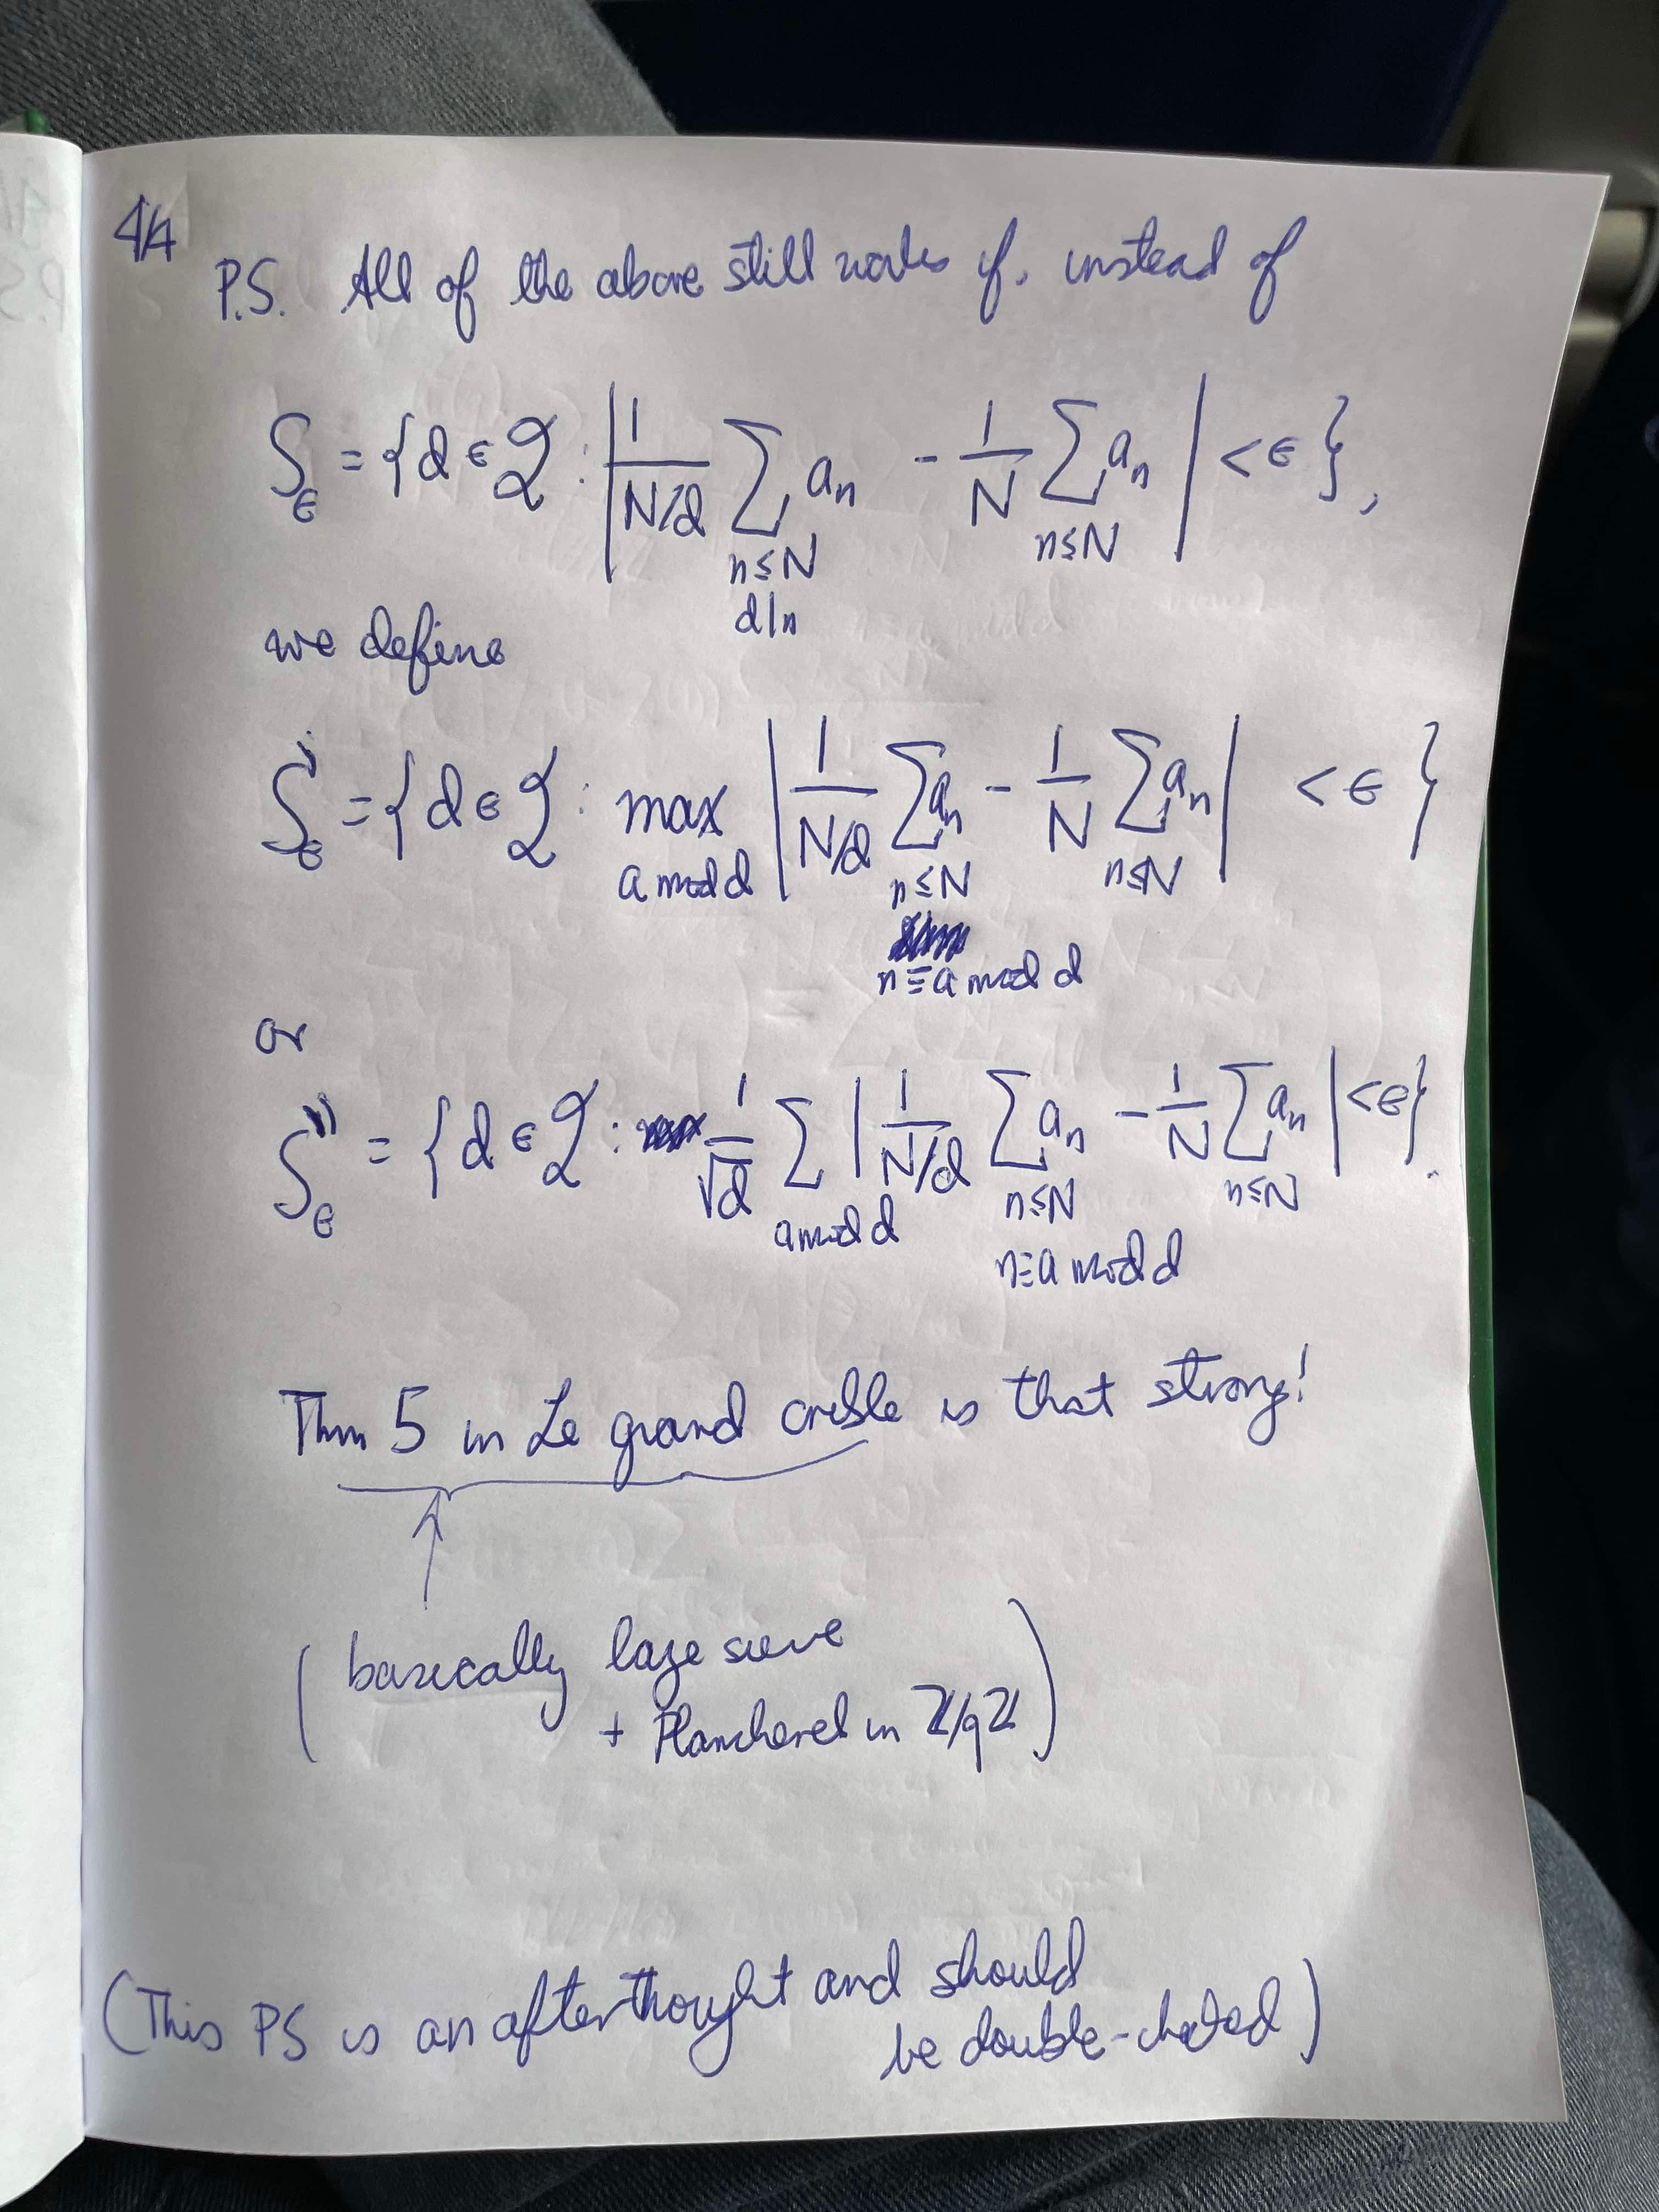 4/4
P.S. All of the above still works if, instead of
S_ε = {d ∈ 𝒬 : | 1/(N/d) ∑_{n≤N, d|n} a_n - 1/N ∑_{n≤N} a_n | < ε },
we define
S'_ε = {d ∈ 𝒬 : max_{a mod d} | 1/(N/d) ∑_{n≤N, n≡a mod d} a_n - 1/N ∑_{n≤N} a_n | < ε }
or
S''_ε = {d ∈ 𝒬 : 1/√d ∑_{a mod d} | 1/(N/d) ∑_{n≤N, n≡a mod d} a_n - 1/N ∑_{n≤N} a_n | < ε}.
Thm 5 in Le grand crible is that strong!
(basically large sieve
+ Plancherel in ℤ/qℤ)
(This PS is an afterthought and should
be double-checked)